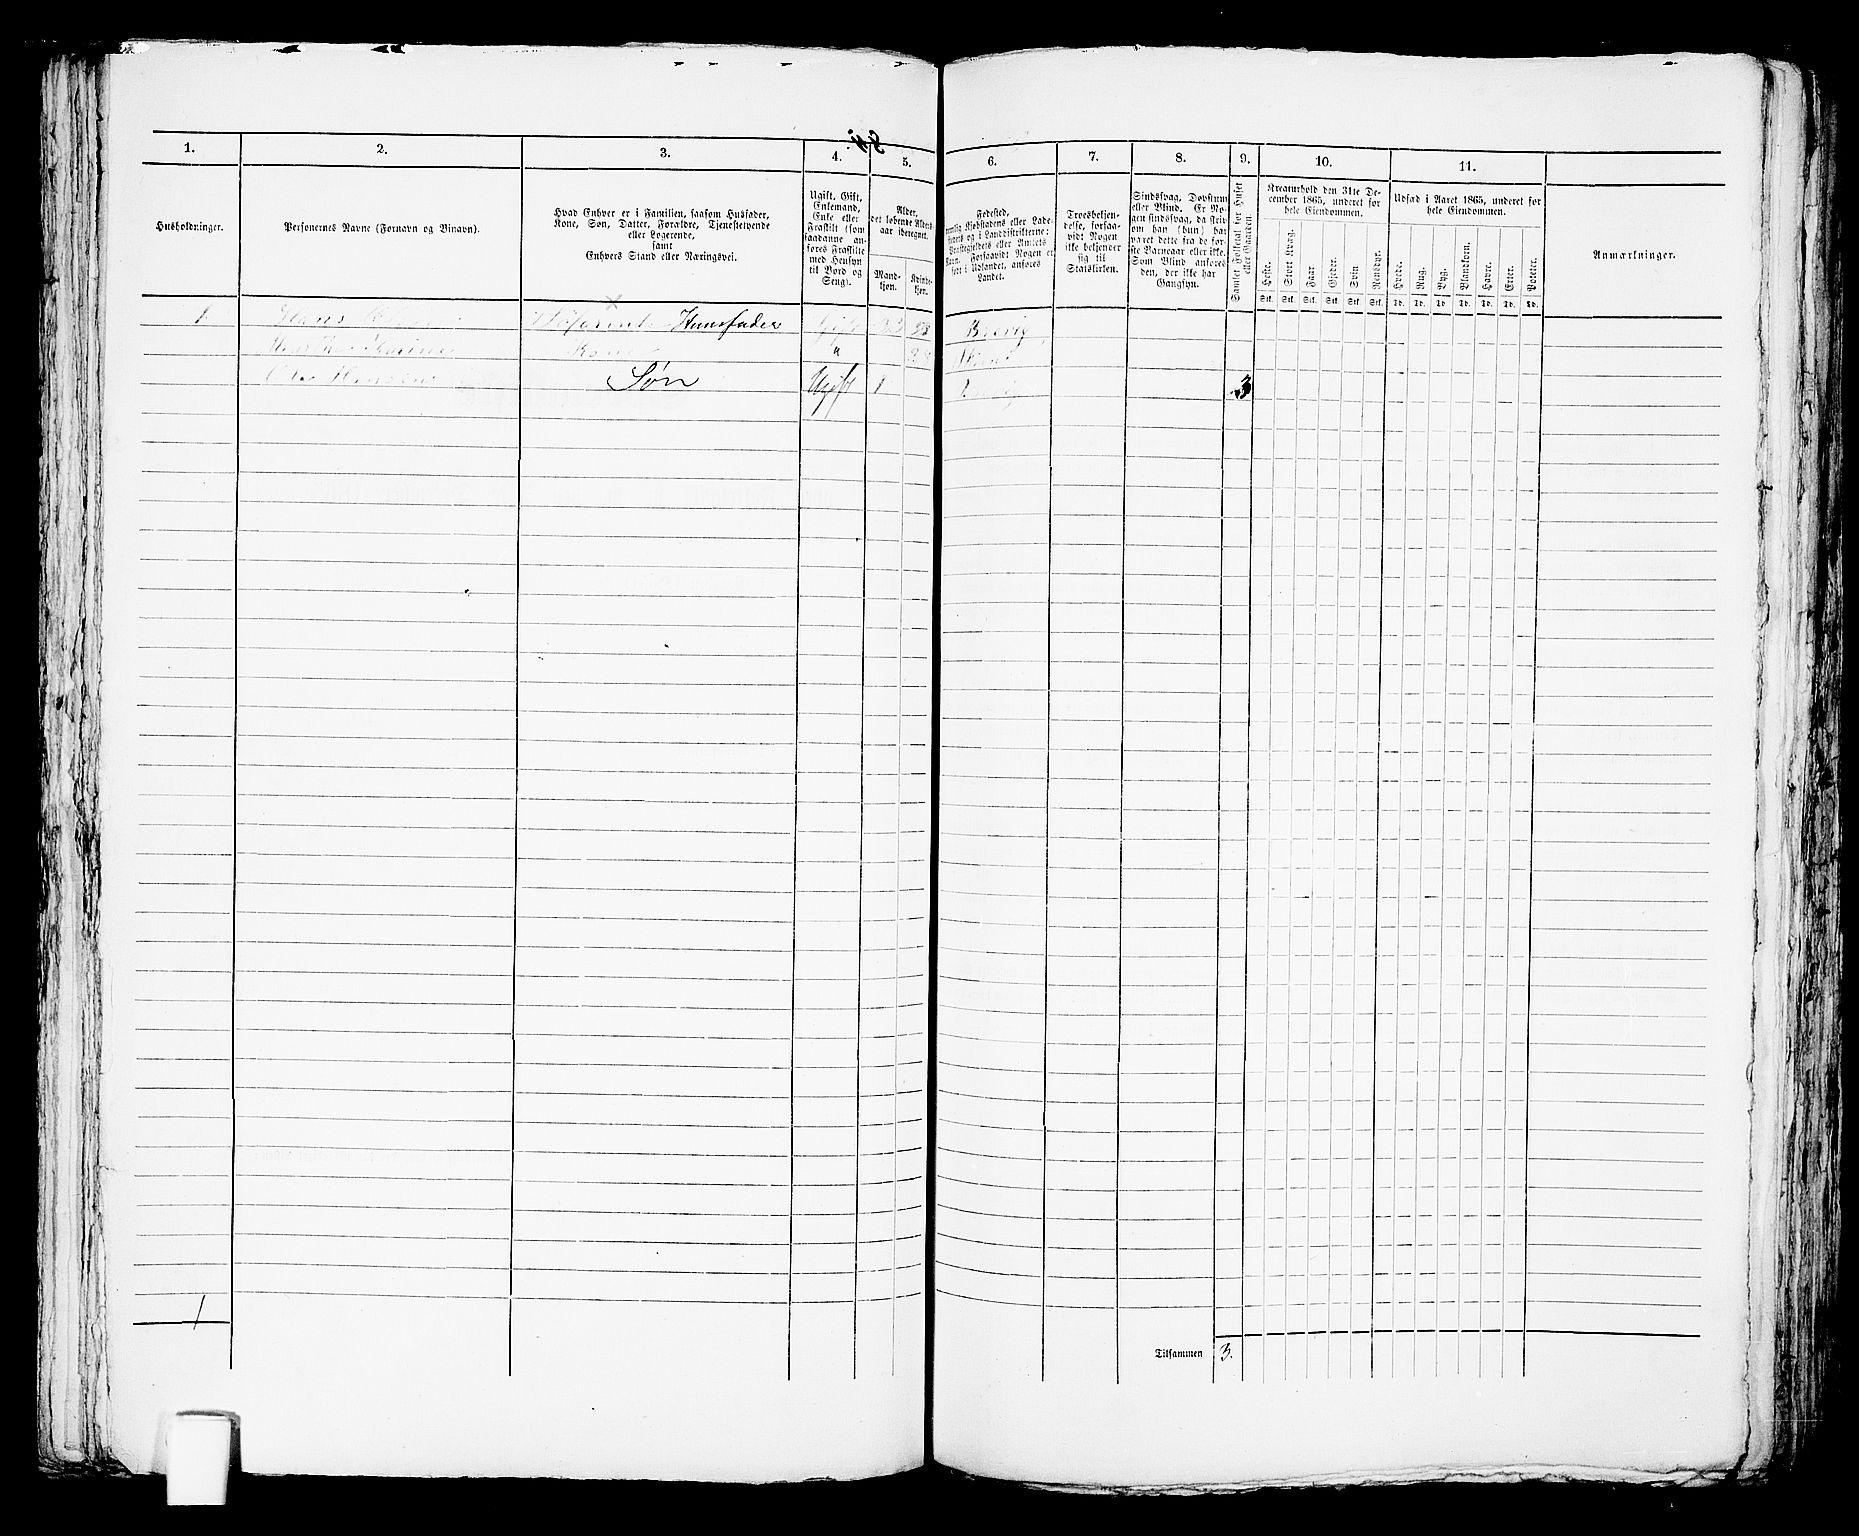 1. 2. 3. 4. 5. 6. 7. 8. 9. 10. 11.
Husholdninger.
Personernes Navne (Fornavn og Binavn).
Hvad Enhver er i Familien, saasom Husfader,
Kone, Søn, Datter, Forældre, Tjenestetyende
eller Logerende,
samt
Enhvers Stand eller Næringsvei.
Ugift, Gift,
Enkemand,
Enke eller
Fraskilt (som
saadanne an-
føres Fraskilte
med Hensyn
til Bord og
Seng).
Alder,
det løbende Alders-
aar iberegnet.
Mand-
kjøn.
Kvinde-
kjøn.
Fødested,
nemlig Kjøbstadens eller Lade-
stedets og i Landdistrikterne:
Præstegjeldets eller Amtets
Navn. Forsaavidt Nogen er
født i Udlandet, anføres
Landet.
Troesbekjen-
delse, forsaa-
vidt Nogen
ikke bekjender
sig til
Statskirken.
Sindssvag, Døvstum
eller Blind. Er No-
gen sindssvag, da skri-
ves om han (hun) har
været dette fra de før-
ste Barneaar eller ikke.
Som Blind anføres
den, der ikke har
Gangsyn.
Samlet Folketal for Huset
eller Gaarden.
Kreaturhold den 31te De-
cember 1865, underet for
hele Eiendommen.
Heste. Stort Kvæg. Faar Gjeder. Svin Rensdyr.
Stk. Stk. Stk. Stk. Stk. Stk.
Udsæd i Aaret 1865, underet for
hele Eiendommen.
Hvede. Rug. Byg. Blandkorn. Havre. Erter. Poteter.
Td. Td. Td. Td. Td. Td. Td.
Anmærkninger.
1. Hans Husfader Gift Brevig
Kone "
Søn Ugift 1 3
1
Tilsammen 3.